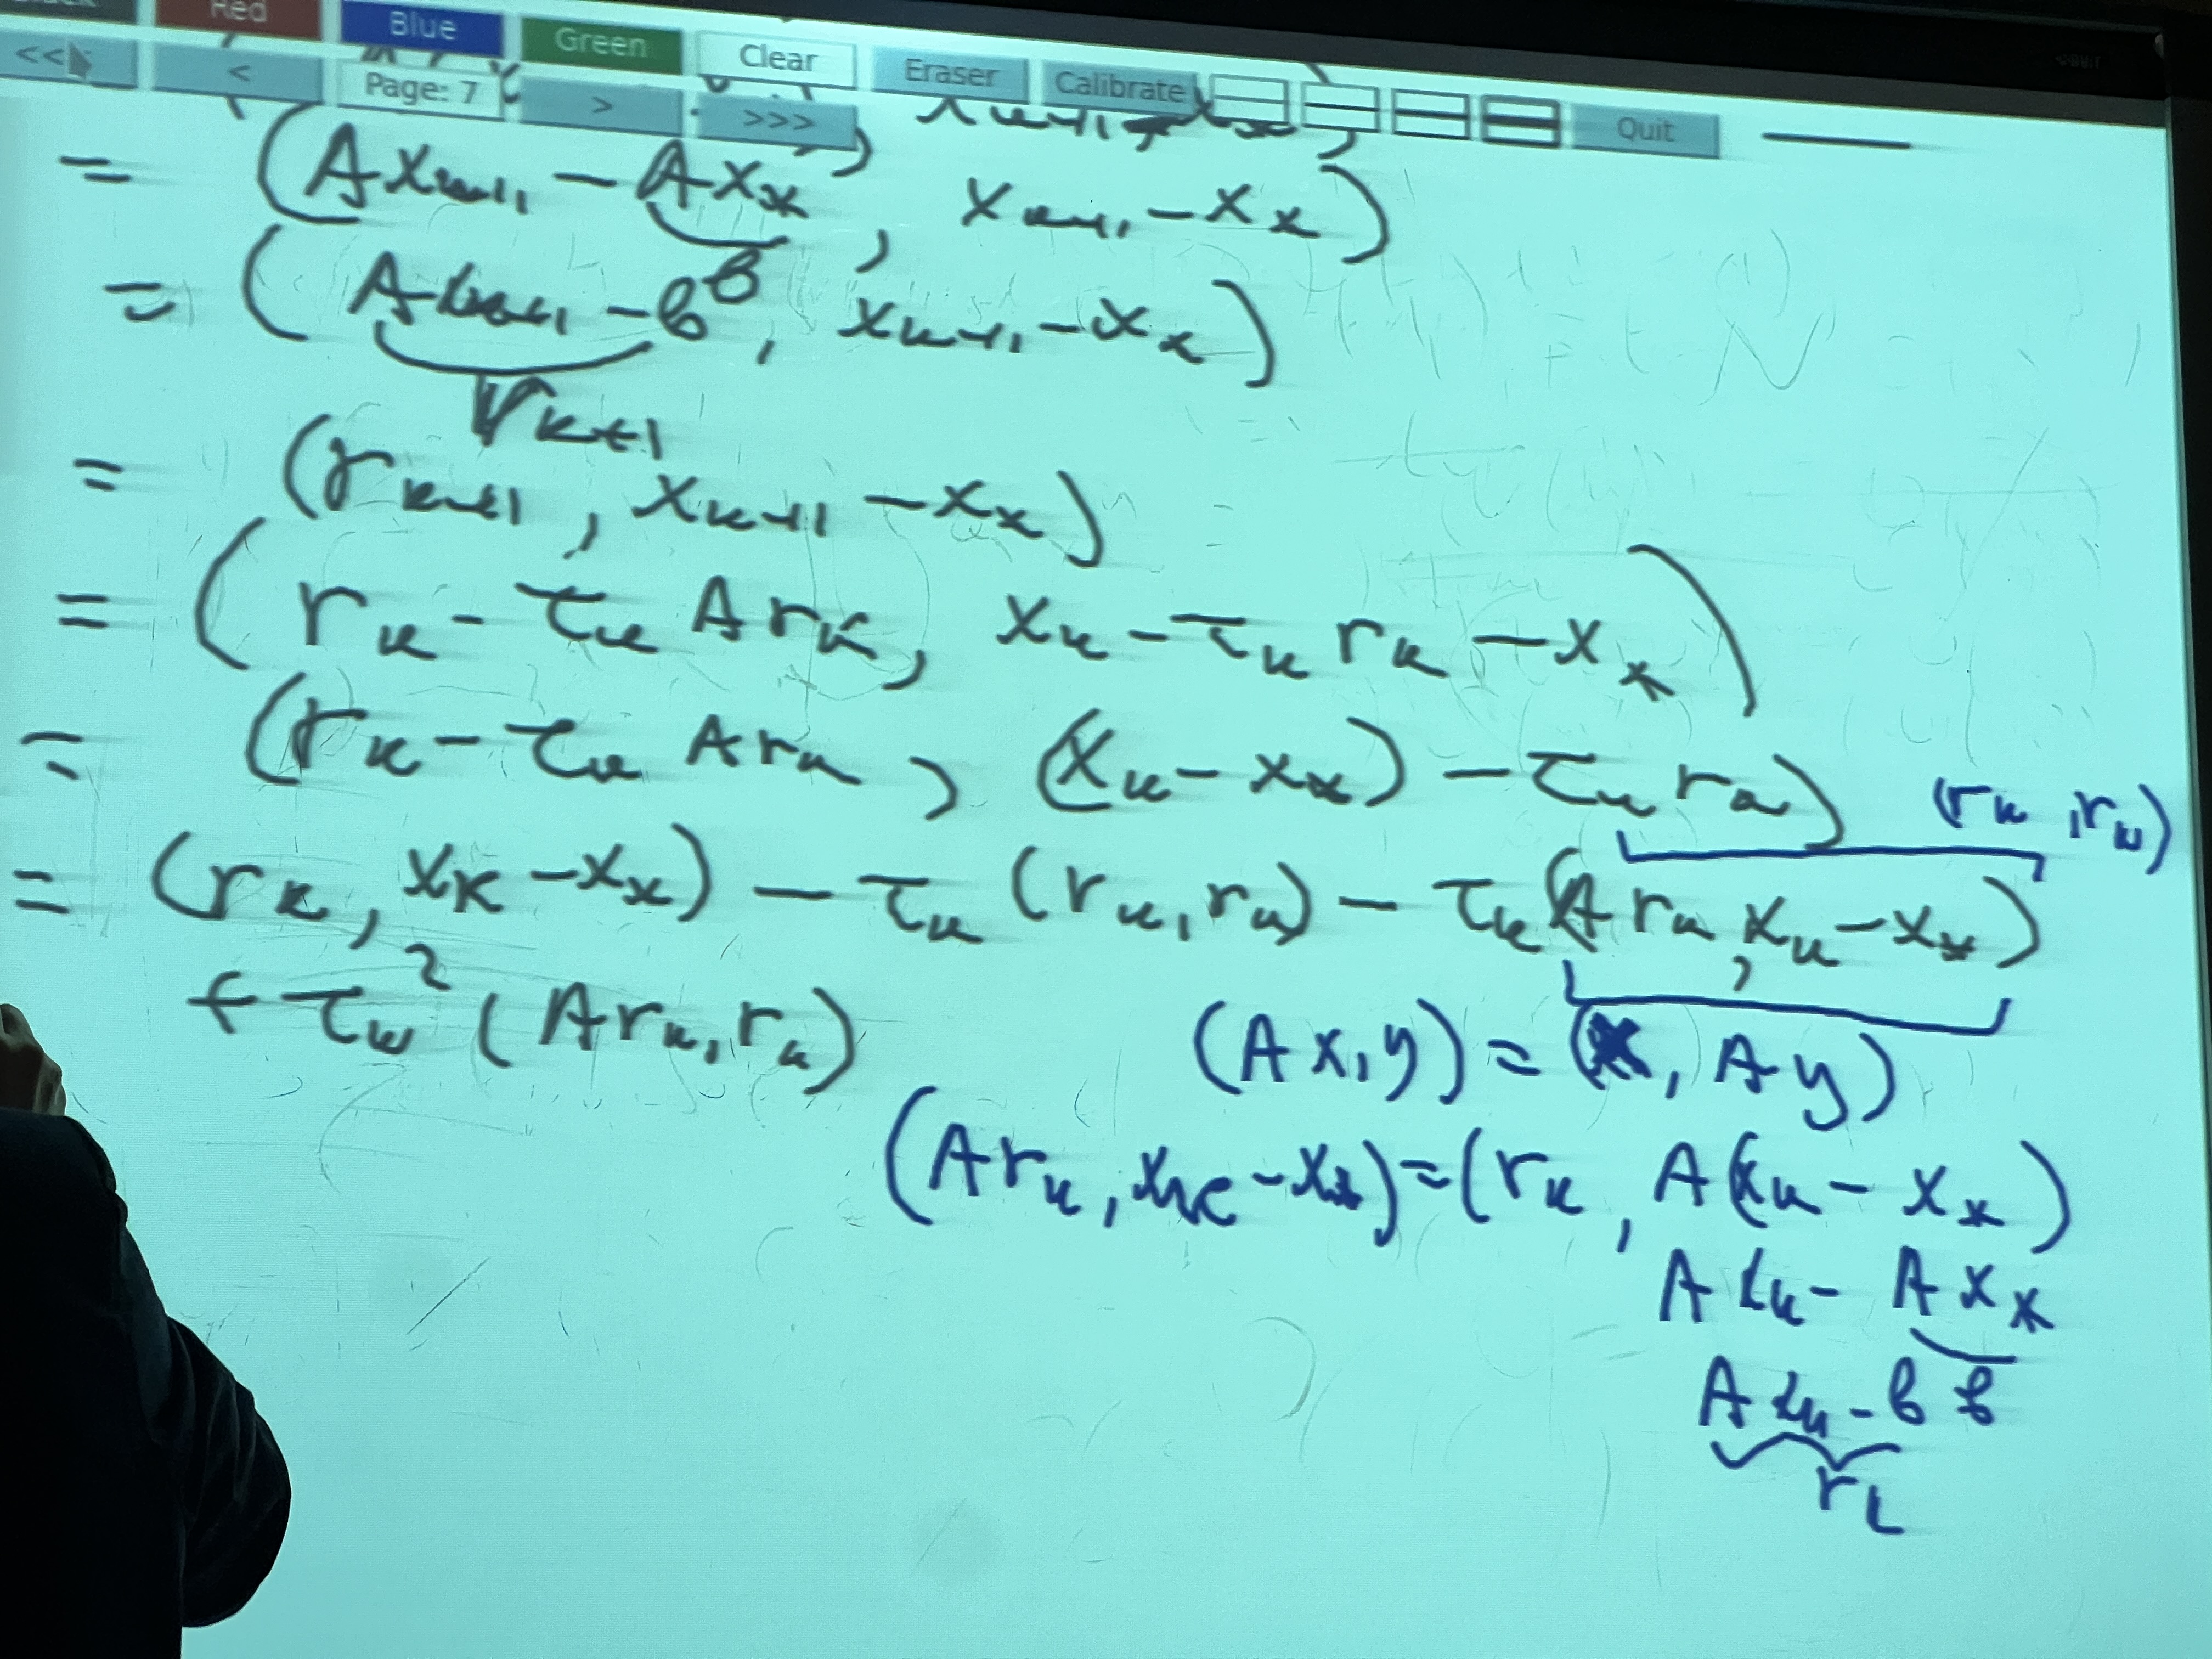 Red Blue Green Clear Eraser Calibrate Quit
<< < Page: 7 > >>>
= (Ax_{k+1} - Ax_*, x_{k+1} - x_*)
= (Ax_{k+1} - b b, x_{k+1} - x_*)
r_{k+1}
= (r_{k+1}, x_{k+1} - x_*)
= (r_k - τ_k Ar_k, x_k - τ_k r_k - x_*)
= (r_k - τ_k Ar_k, (x_k - x_*) - τ_k r_k)
(r_k, r_k)
= (r_k, x_k - x_*) - τ_k (r_k, r_k) - τ_k (Ar_k, x_k - x_*)
+ τ_k^2 (Ar_k, r_k)
(Ax, y) = (x, Ay)
(Ar_k, x_k - x_*) = (r_k, A(x_k - x_*)
Ax_k - Ax_*
Ax_k - b b
r_k